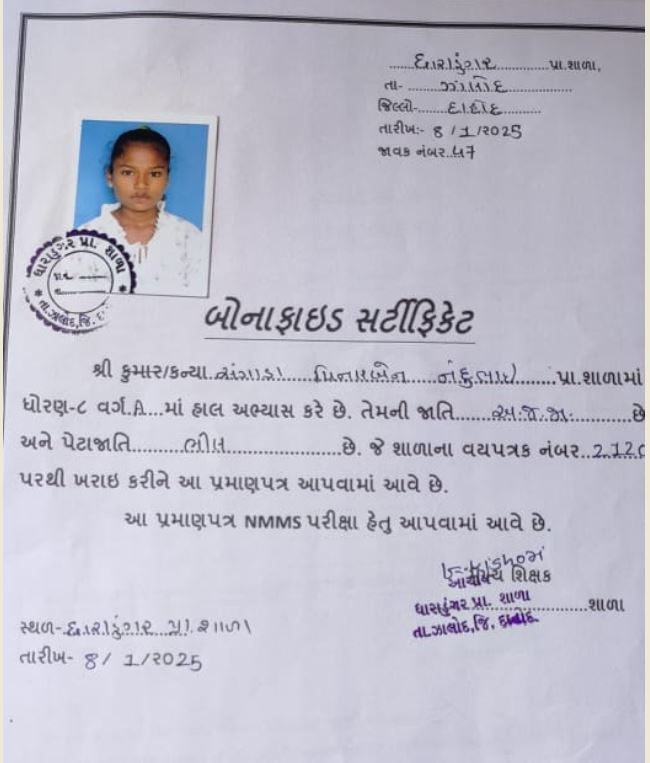 ધારાડુંગર પ્રા.શાળા,
તા- ઝાલોદ
જિલ્લો- દાહોદ
તારીખ:- 8/1/2025
જાવક નંબર..47
ધારાડુંગર પ્રા. શાળા
તા.ઝાલોદ,જિ. દા
બોનાફાઇડ સર્ટીફિકેટ
શ્રી કુમાર/કન્યા નંદુભાઇ પ્રા.શાળામાં
ધોરણ-૮ વર્ગ.A...માં હાલ અભ્યાસ કરે છે. તેમની જાતિ અ.જ.જા. છે
અને પેટાજાતિ ભીલ છે. જે શાળાના વયપત્રક નંબર..2120
પરથી ખરાઇ કરીને આ પ્રમાણપત્ર આપવામાં આવે છે.
આ પ્રમાણપત્ર NMMS પરીક્ષા હેતુ આપવામાં આવે છે.
શિક્ષક
ધારાડુંગર પ્રા. શાળા શાળા
તા.ઝાલોદ,જિ. દાહોદ
સ્થળ- ધારાડુંગર પ્રા. શાળા
તારીખ- 8/1/2025